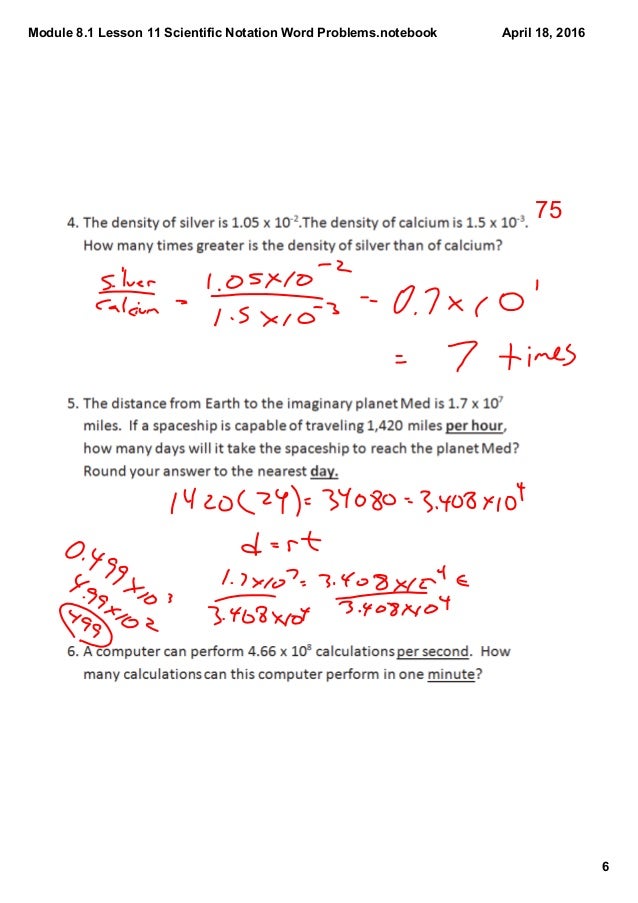 Module 8.1 Lesson 11 Scientific Notation Word Problems.notebook April 18, 2016
75
4. The density of silver is 1.05 x 10⁻².The density of calcium is 1.5 x 10⁻³.
How many times greater is the density of silver than of calcium?
Silver / Calcium = 1.05×10⁻² / 1.5×10⁻³ = 0.7×10¹
= 7 times
5. The distance from Earth to the imaginary planet Med is 1.7 x 10⁷
miles. If a spaceship is capable of traveling 1,420 miles per hour,
how many days will it take the spaceship to reach the planet Med?
Round your answer to the nearest day.
1420(24) = 34080 = 3.408×10⁴
d = rt
1.7×10⁷ / 3.408×10⁴ = 3.408×10⁴ t / 3.408×10⁴
0.499×10³
4.99×10²
499
6. A computer can perform 4.66 x 10⁸ calculations per second. How
many calculations can this computer perform in one minute?
6